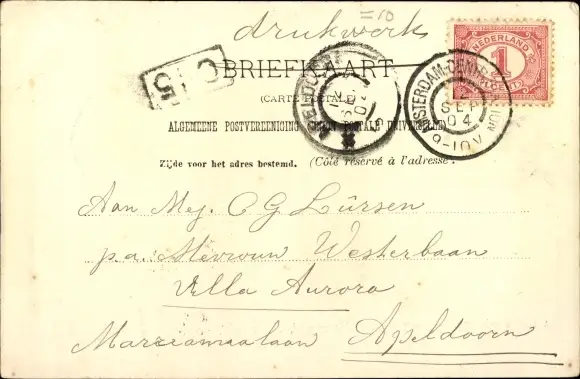 drukwerk
=10
C
5
BRIEFKAART
(CARTE POSTALE)
ALGEMEENE POSTVEREENIGING (UNION POSTALE UNIVERSELLE)
Zijde voor het adres bestemd. (Côté réservé à l'adresse.)
NEDERLAND
1
CENT
AMSTERDAM-CENT.STATION
SEP
04
9-10V
SEP
04
Aan Mej. C G Lürsen
p.a. Mevrouw Westerbaan
Villa Aurora
Marianalaan Apeldoorn